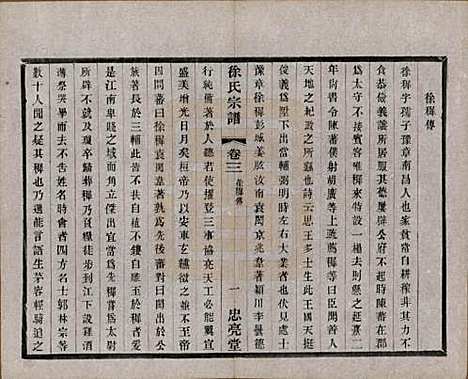 徐穉傳
徐穉字孺子豫章南昌人也家貧常自耕稼非其力不
食恭儉義讓所居服其德屢辟公府不起時陳蕃在郡
爲太守不接賓客唯穉來特設一榻去則懸之延熹二
年尚書令陳蕃僕射胡廣等上疏薦穉等曰臣聞善人
天地之紀政之所由也詩云思王多士生此王國天挺
俊乂爲墅下出當輔弼明時左右大業者也伏見處士
豫章徐穉彭城姜肱汝南袁閎京兆韋著潁川李曇德
徐氏宗譜
卷三
徐穉傳
一
忠亮堂
行純備著于人聽若使擢登三事協亮天工必能翼宣
盛美增光日月矣桓帝乃以安車玄纁徵之並不至帝
因問蕃曰徐穉袁閎韋著誰爲先後蕃對曰閎生出公
族聞道漸訓著長於三輔禮義之俗所謂不扶自直不鏤自雕至於穉者爰
是江南卑賤之域而角立傑出宜當爲先穉嘗爲太尉
黃瓊所辟不就及瓊卒歸葬穉乃負糧徒步到江下設雞酒
薄祭哭畢而去不告姓名時會者四方名士郭林宗等
數十人聞之疑其穉也乃選能言語生茅容輕騎追之